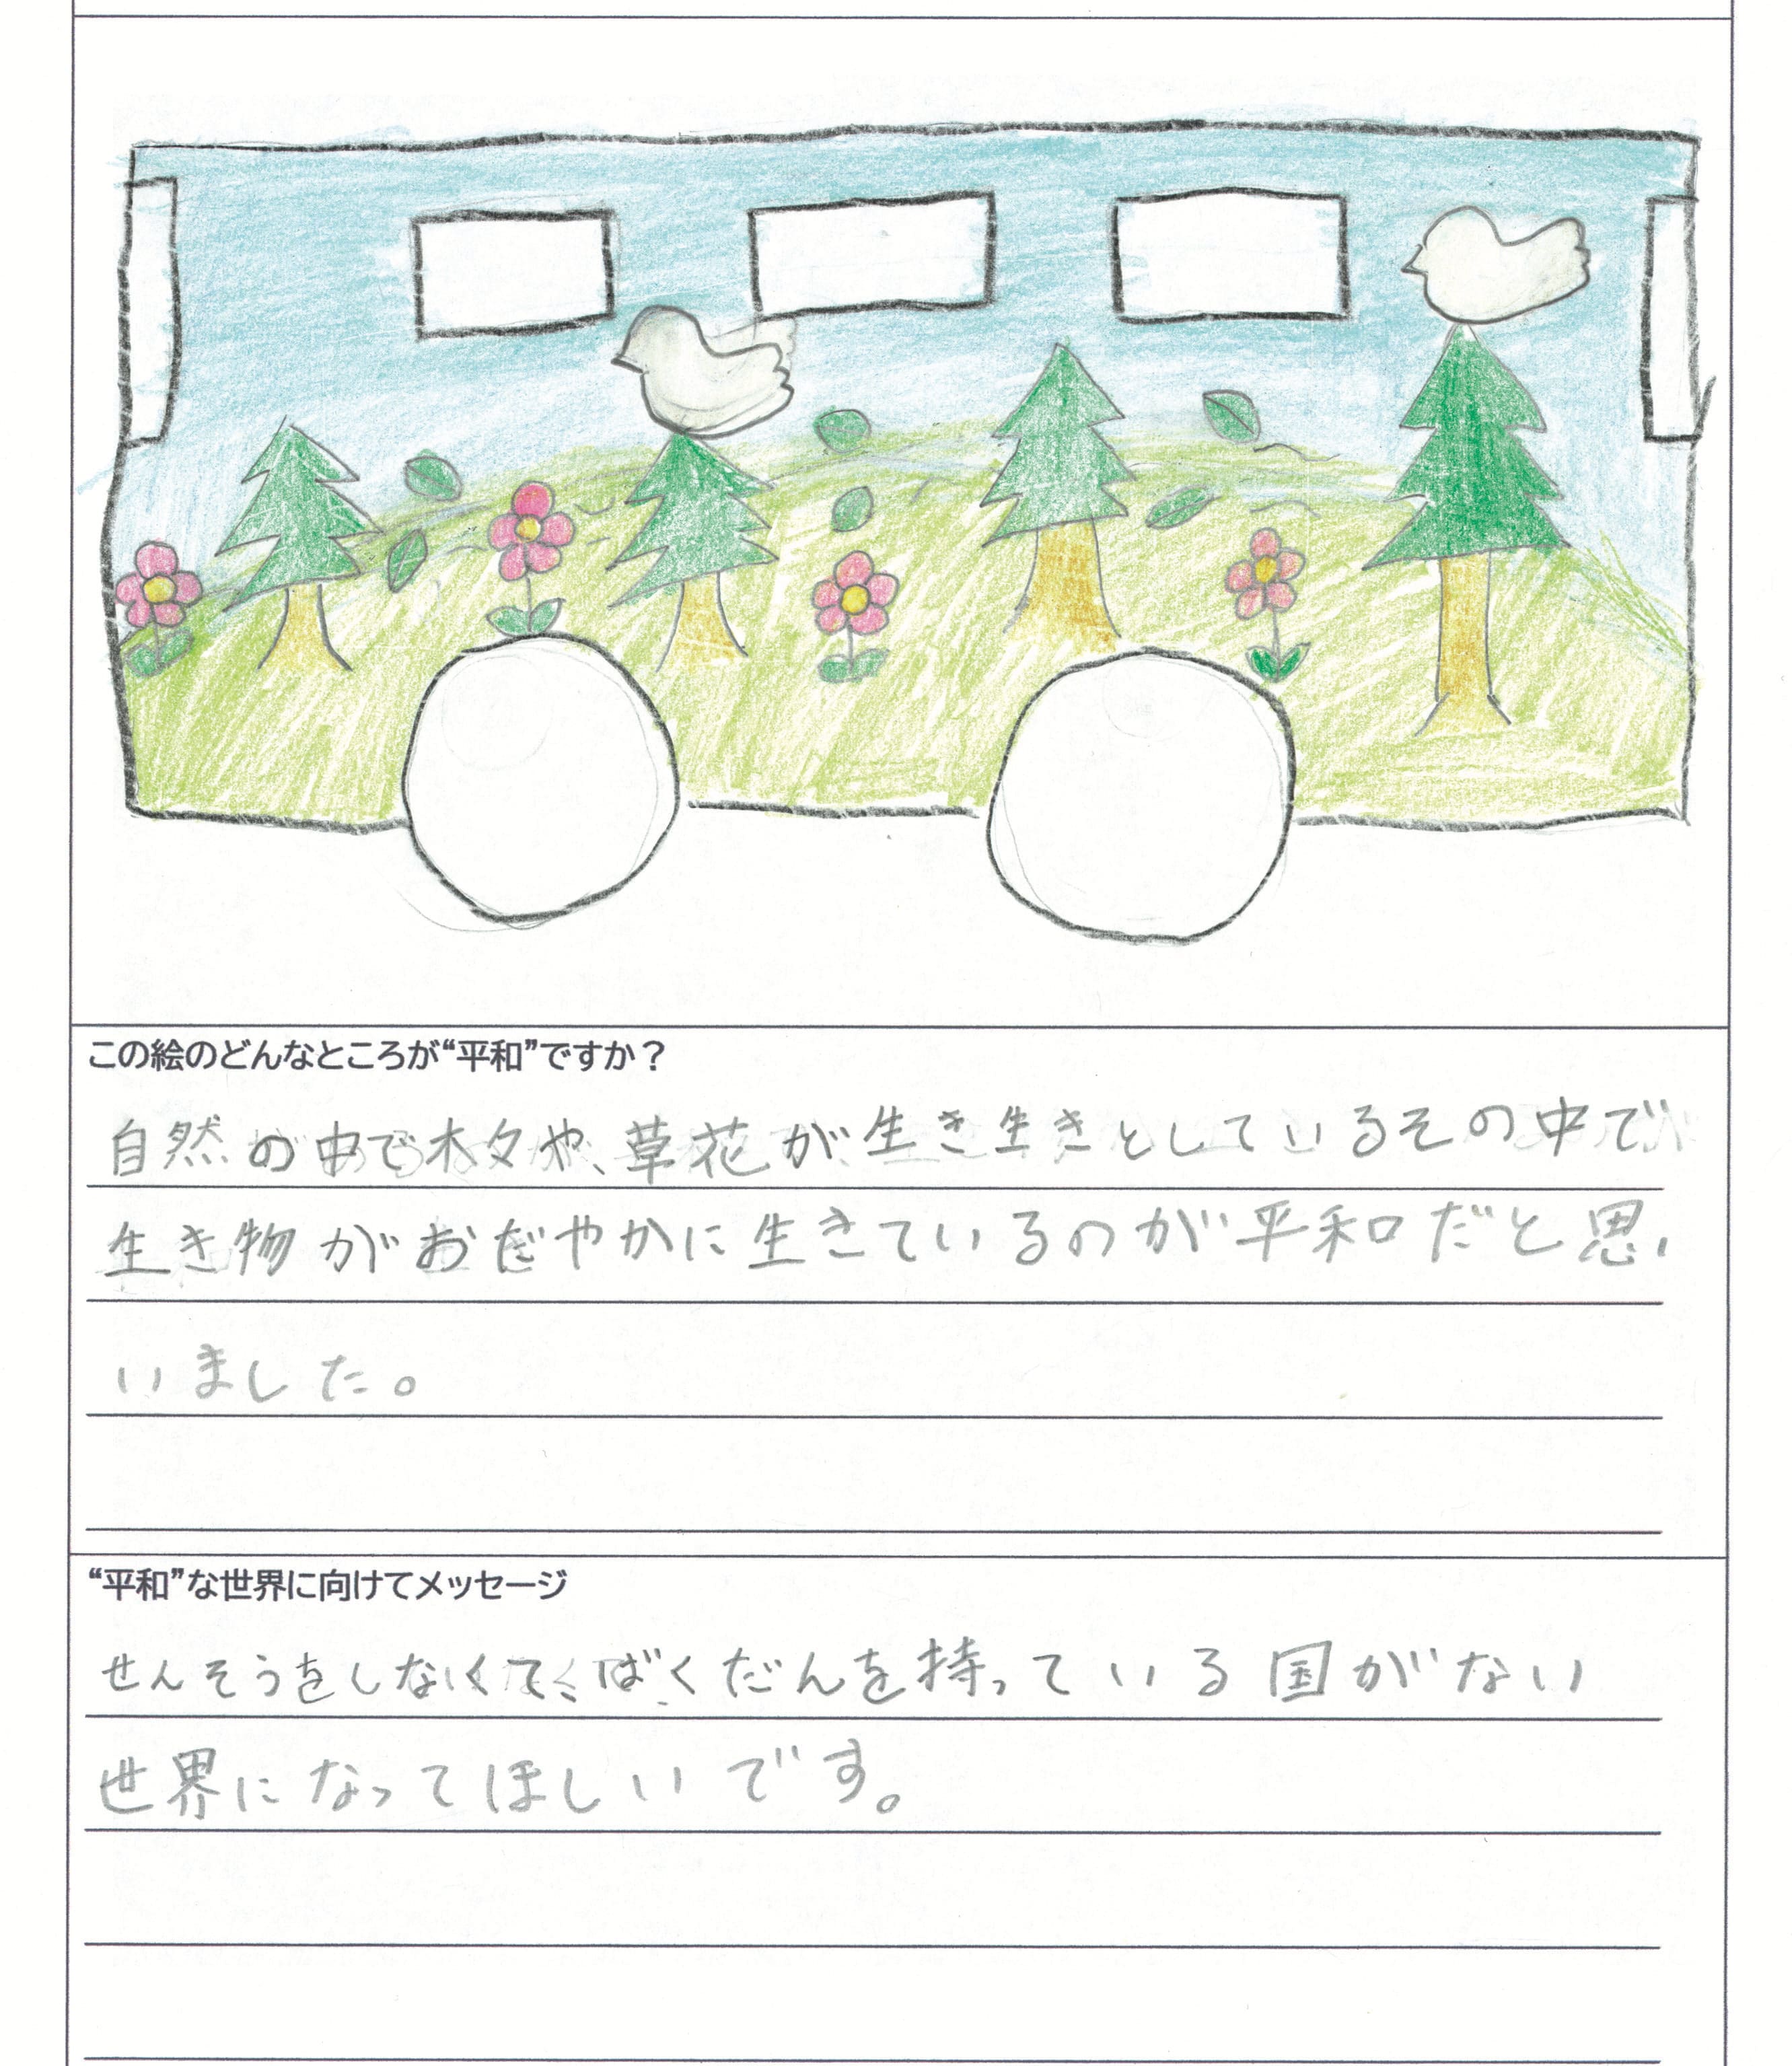 この絵のどんなところが“平和”ですか？
自然の中で木々や、草花が生き生きとしているその中で
生き物がおだやかに生きているのが平和だと思
いました。
“平和”な世界に向けてメッセージ
せんそうをしなくて、ばくだんを持っている国がない
世界になってほしいです。